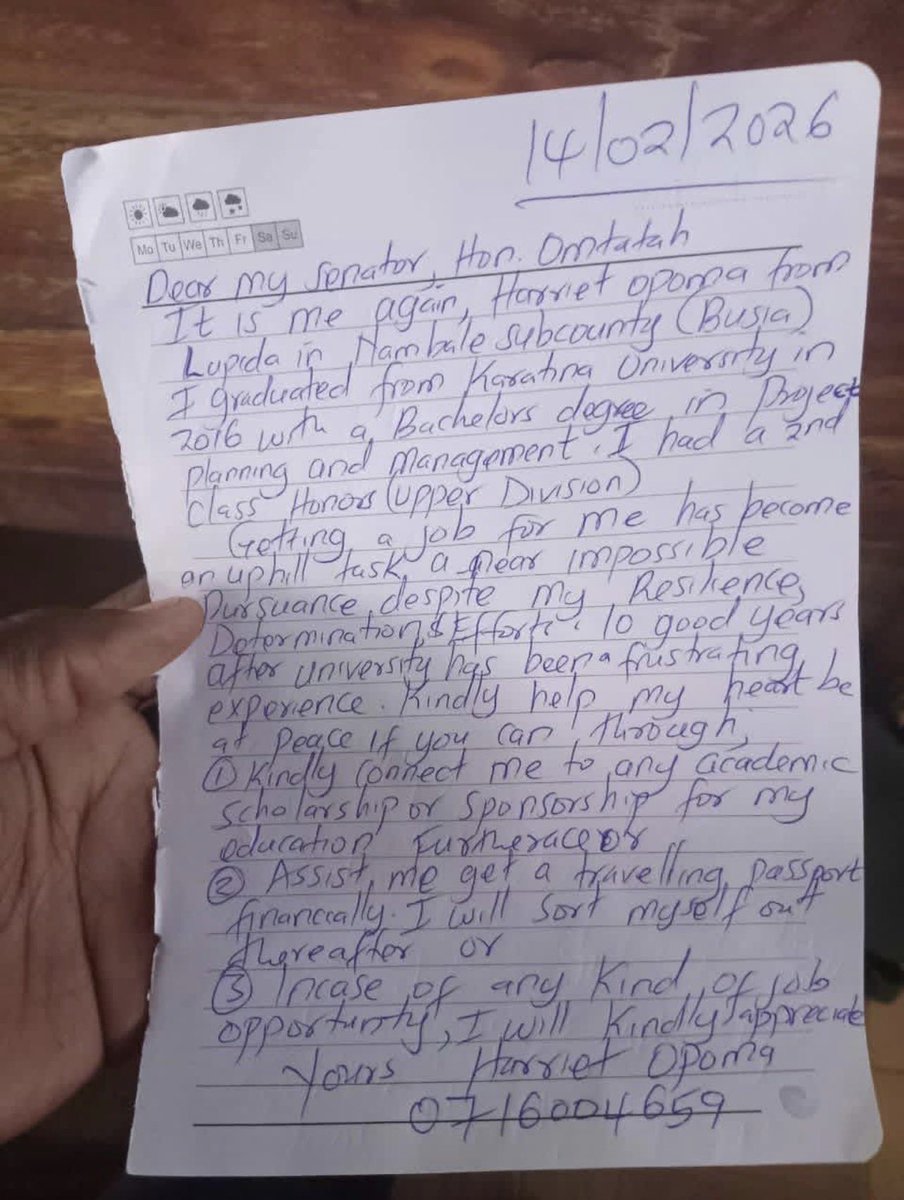 14/02/2026
Mo Tu We Th Fr Sa Su
Dear my Senator, Hon. Omtatah
It is me again, Harriet Opoma from
Lupida in Nambale subcounty (Busia)
I graduated from Karatina University in
2016 with a Bachelors degree in Project
planning and Management. I had a 2nd
Class Honors (Upper Division)
Getting a job for me has become
an uphill task, a near impossible
Pursuance despite my Resilience,
Determination & Efforts. 10 good years
after university has been a frustrating
experience. Kindly help my heart be
at peace if you can through,
① Kindly connect me to any academic
scholarship or sponsorship for my
education furtherace or
② Assist me get a travelling passport
financially. I will sort myself out
thereafter or
③ Incase of any kind of job
opportunity, I will kindly appreciate
Yours Harriet Opoma
0716004659